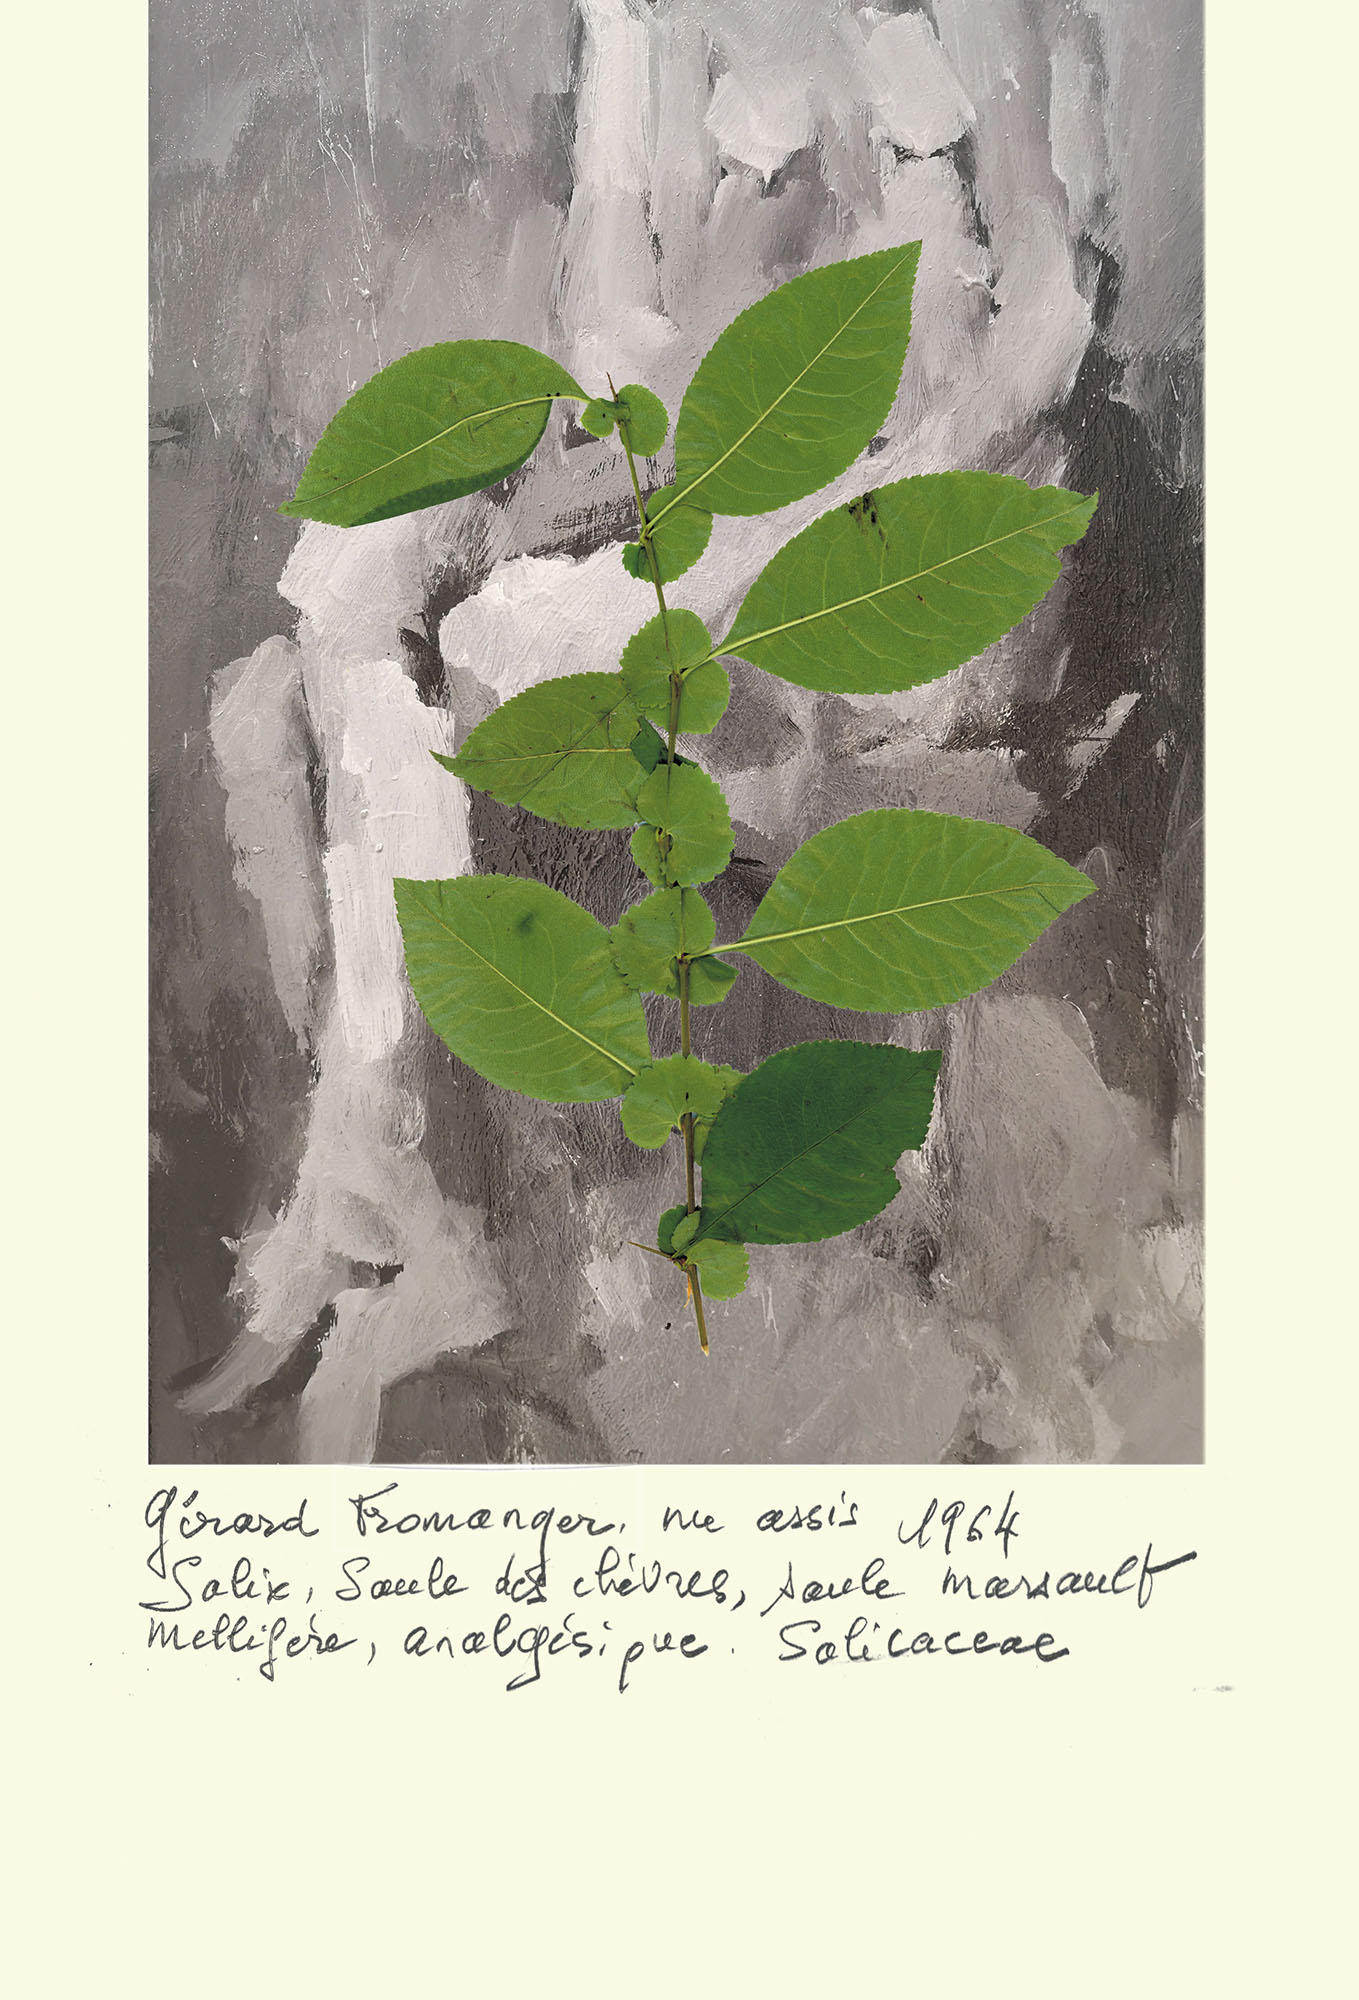 Gérard Fromanger, nu assis 1964
Salix, Saule des chèvres, saule marsault
Mellifère, analgésique. Salicaceae